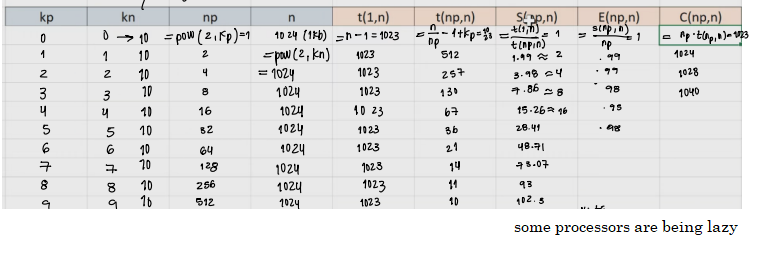 kp kn np n t(1,n) t(np,n) S(np,n) E(np,n) C(np,n)
0 0 → 10 =pow(2,kp)=1 1024 (1kb) =n-1=1023 = n/np -1+kp= =t(1,n)/t(np,n) = S(np,n)/np = 1 = np·t(np,n)=1023
1 1 10 2 =pow(2,kn) 1023 512 1.99 ≈ 2 .99 1024
2 2 10 4 =1024 1023 257 3.98 ≈ 4 .99 1028
3 3 10 8 1024 1023 130 7.86 ≈ 8 98 1040
4 4 10 16 1024 1023 67 15.26 ≈ 16 .95
5 5 10 32 1024 1023 36 28.41 .88
6 6 10 64 1024 1023 21 48.71
7 7 10 128 1024 1023 14 73.07
8 8 10 256 1024 1023 11 93
9 9 10 512 1024 1023 10 102.3
some processors are being lazy